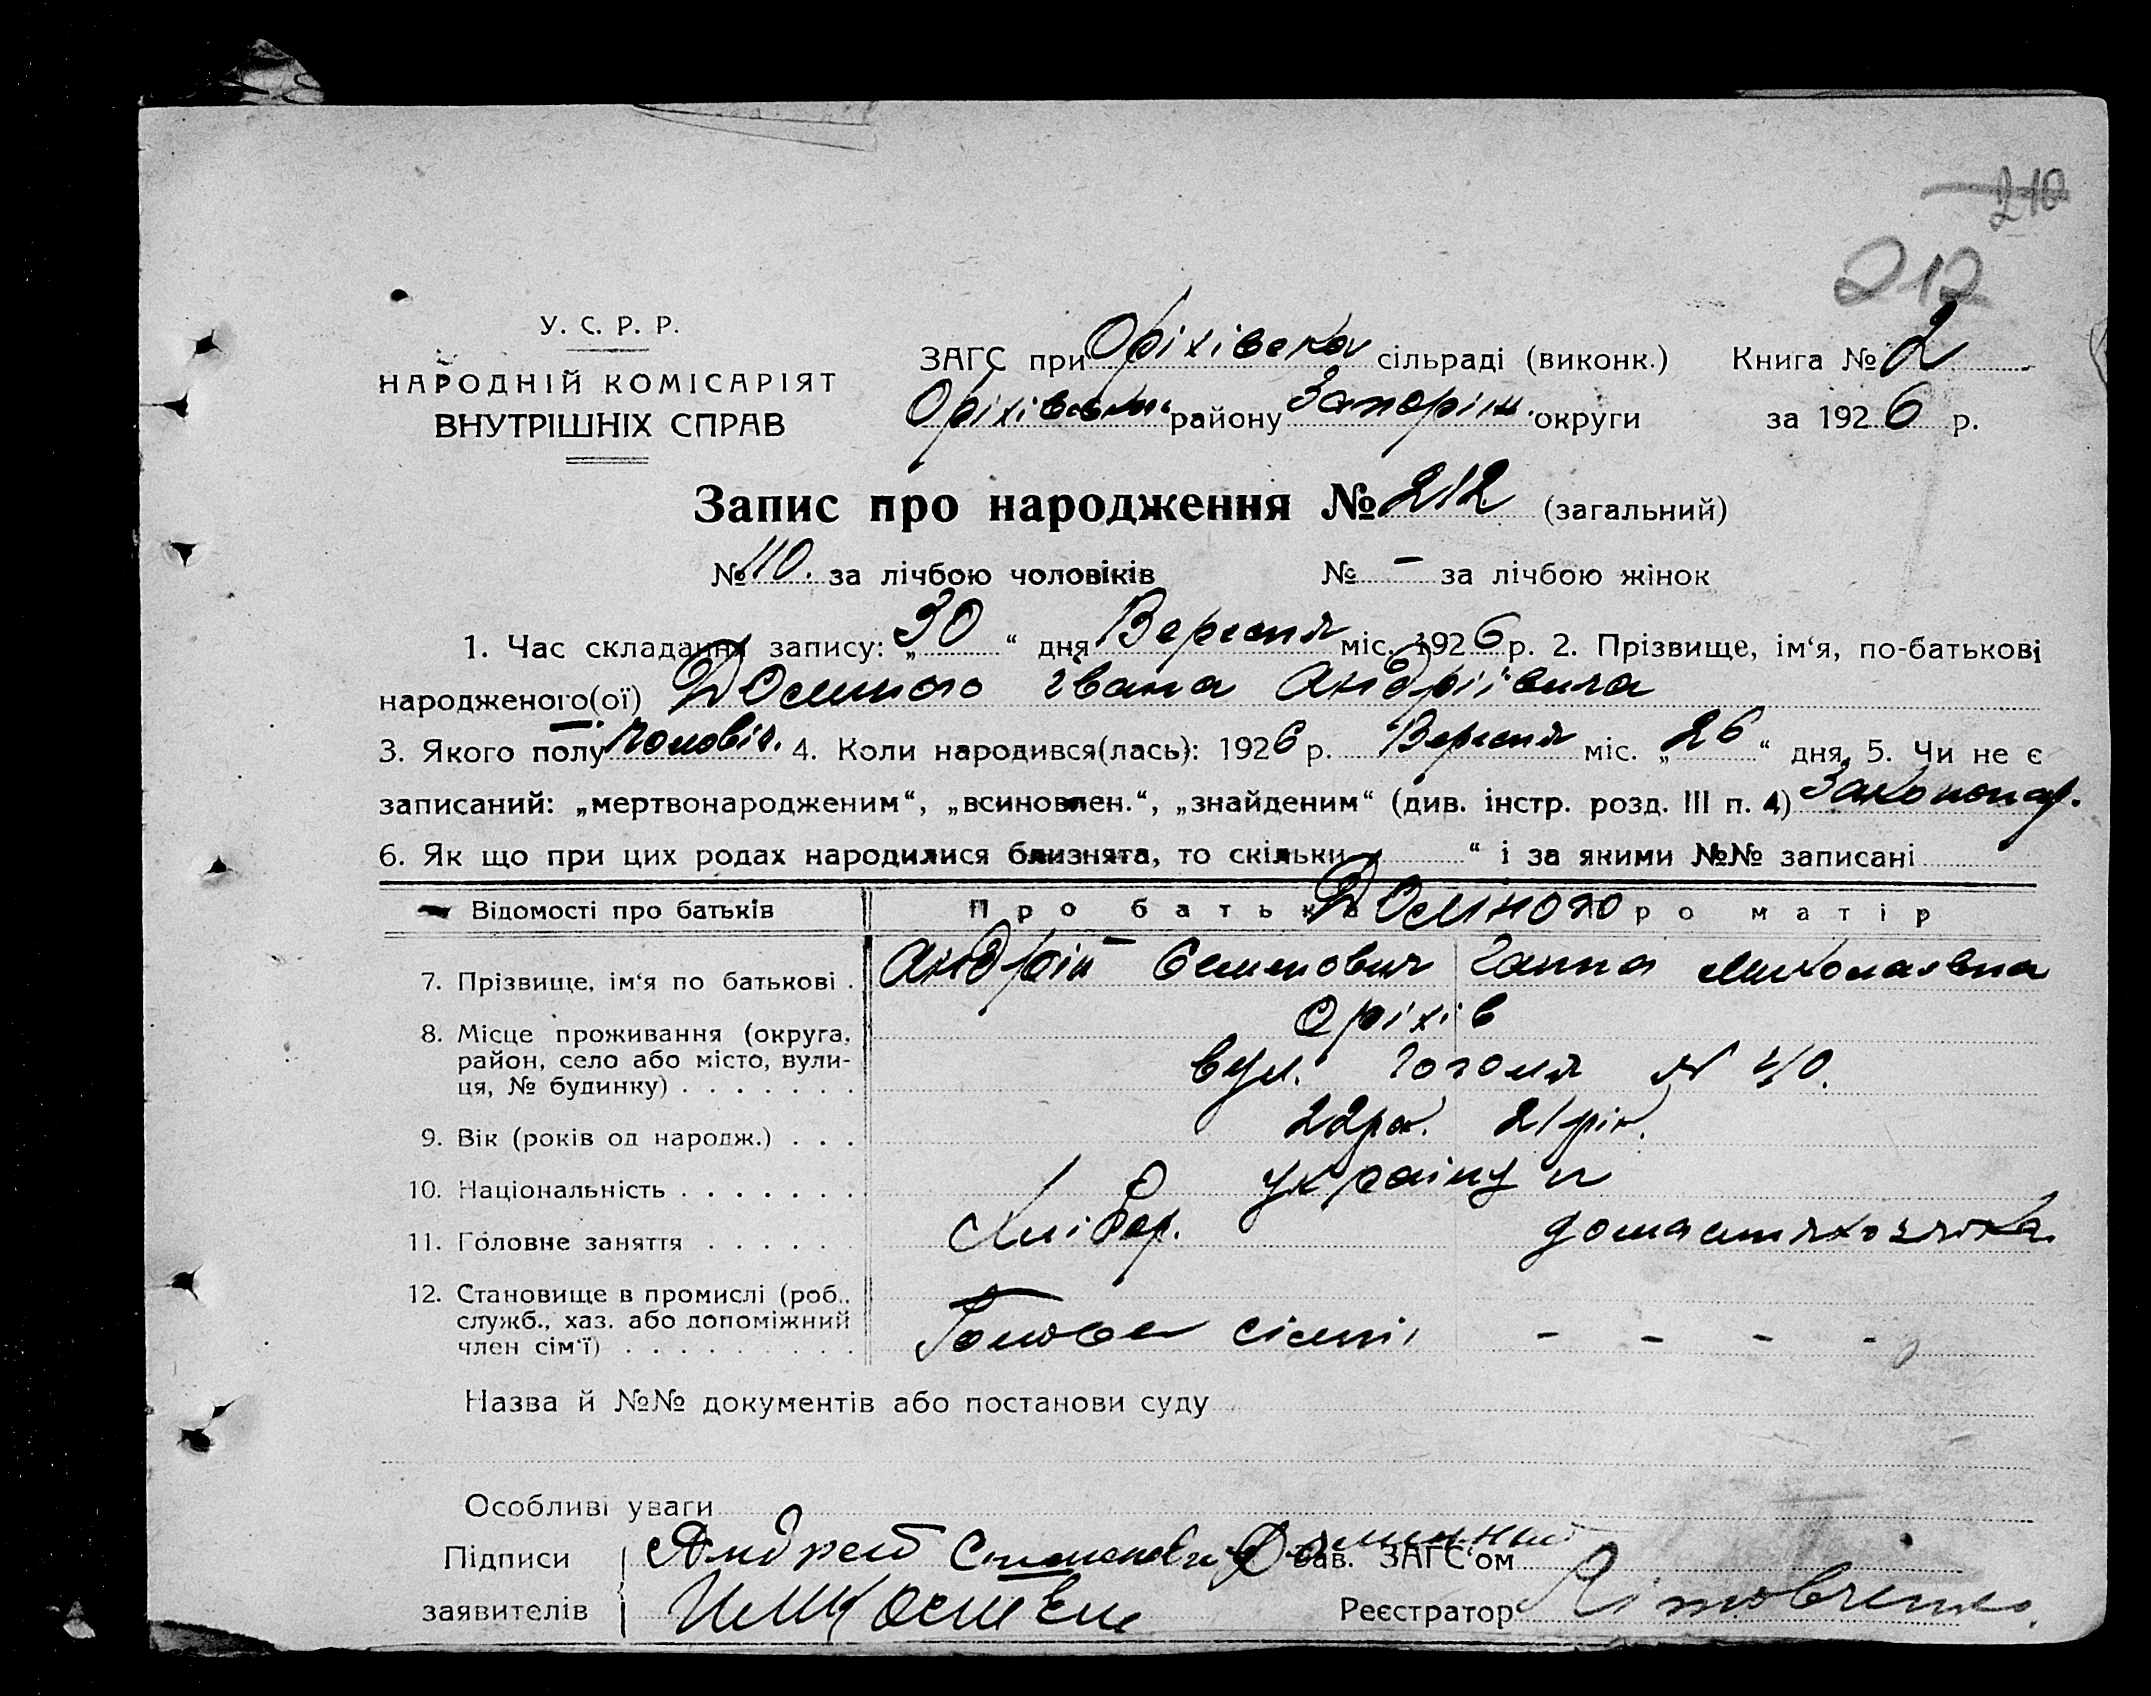 210
212
У. С. Р. Р.
НАРОДНІЙ КОМІСАРІЯТ
ВНУТРІШНІХ СПРАВ
ЗАГС при Оріхівска сільраді (виконк.) Книга № 2
Оріхівськ. району Запоріж. округи за 1926 р.
Запис про народження № 212 (загальний)
№ 110. за лічбою чоловіків № – за лічбою жінок
1. Час складання запису: „30“ дня Вересня міс. 1926 р. 2. Прізвище, ім‘я, по-батькові
народженого(ої) Івана Андрїївича
3. Якого полу чоловіч. 4. Коли народився(лась): 1926 р. Вересня міс. „26“ дня, 5. Чи не є
записаний: „мертвонародженим“, „всиновлен.“, „знайденим“ (див. інстр. розд. III п. 4) Законнар.
6. Як що при цих родах народилися близнята, то скільки “ і за якими №№ записані
Відомості про батьків Про батька Про матір
7. Прізвище, ім‘я по батькові . Андрій Семенович Ганна Миколаевна
8. Місце проживання (округа, Оріхів
район, село або місто, вули-
ця, № будинку) . . . . . . . вул. Гоголя № 40.
9. Вік (років од народж.) . . . 22 рок. 21 рік.
10. Національність . . . . . . . українці
11. Головне заняття . . . . . Хлібор. домашняхозяйка
12. Становище в промислі (роб.,
служб., хаз. або допоміжний
член сім‘ї) . . . . . . . . . Голова сімьї – – – –
Назва й №№ документів або постанови суду
Особливі уваги
Підписи Андрей Семенович Зав. ЗАГС‘ом
заявителів Реєстратор